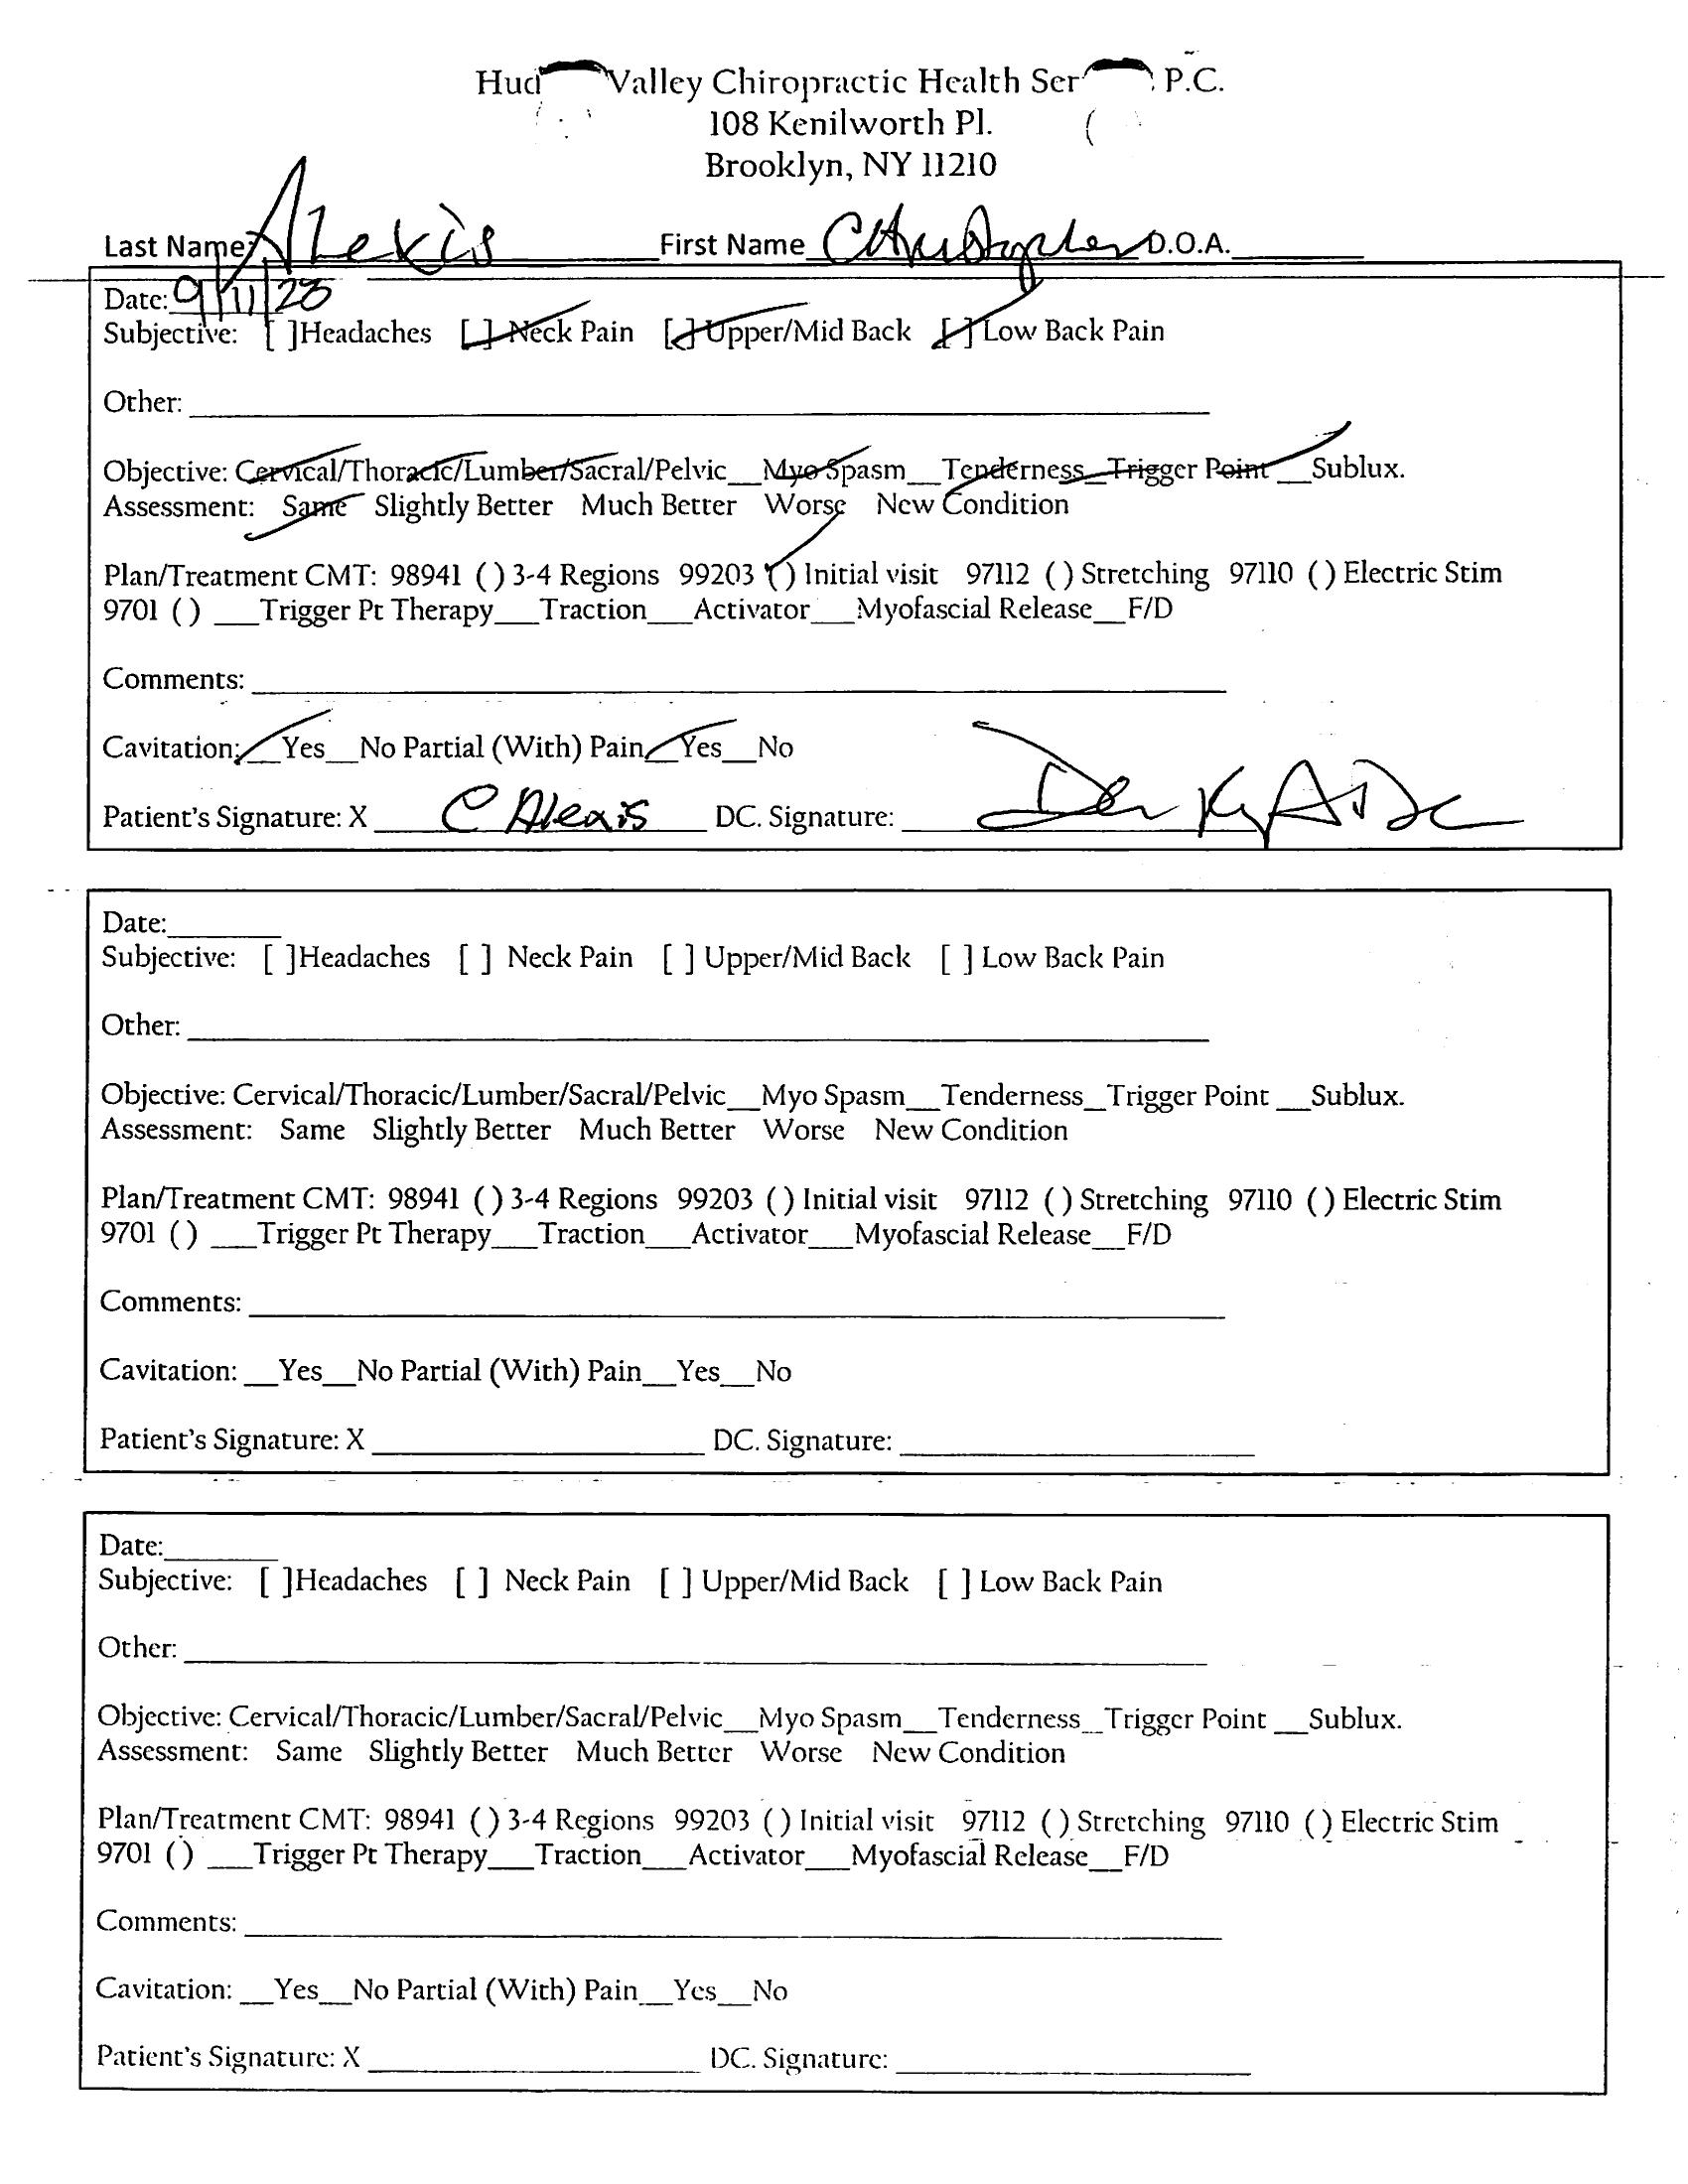 Hud Valley Chiropractic Health Ser P.C.
108 Kenilworth Pl.
Brooklyn, NY 11210
Last Name: Alexis First Name Christopher D.O.A.
Date: 9/11/23
Subjective: [ ]Headaches [ ] Neck Pain [ ] Upper/Mid Back [ ] Low Back Pain
Other:
Objective: Cervical/Thoracic/Lumber/Sacral/Pelvic__Myo Spasm__Tenderness__Trigger Point __Sublux.
Assessment: Same Slightly Better Much Better Worse New Condition
Plan/Treatment CMT: 98941 ( ) 3-4 Regions 99203 ( ) Initial visit 97112 ( ) Stretching 97110 ( ) Electric Stim
9701 ( ) ___Trigger Pt Therapy___Traction___Activator___Myofascial Release__F/D
Comments:
Cavitation: __Yes__No Partial (With) Pain__Yes__No
Patient's Signature: X C Alexis DC. Signature:
Date:
Subjective: [ ]Headaches [ ] Neck Pain [ ] Upper/Mid Back [ ] Low Back Pain
Other:
Objective: Cervical/Thoracic/Lumber/Sacral/Pelvic__Myo Spasm__Tenderness__Trigger Point __Sublux.
Assessment: Same Slightly Better Much Better Worse New Condition
Plan/Treatment CMT: 98941 ( ) 3-4 Regions 99203 ( ) Initial visit 97112 ( ) Stretching 97110 ( ) Electric Stim
9701 ( ) ___Trigger Pt Therapy___Traction___Activator___Myofascial Release__F/D
Comments:
Cavitation: __Yes__No Partial (With) Pain__Yes__No
Patient's Signature: X DC. Signature:
Date:
Subjective: [ ]Headaches [ ] Neck Pain [ ] Upper/Mid Back [ ] Low Back Pain
Other:
Objective: Cervical/Thoracic/Lumber/Sacral/Pelvic__Myo Spasm__Tenderness__Trigger Point __Sublux.
Assessment: Same Slightly Better Much Better Worse New Condition
Plan/Treatment CMT: 98941 ( ) 3-4 Regions 99203 ( ) Initial visit 97112 ( ) Stretching 97110 ( ) Electric Stim
9701 ( ) ___Trigger Pt Therapy___Traction___Activator___Myofascial Release__F/D
Comments:
Cavitation: __Yes__No Partial (With) Pain__Yes__No
Patient's Signature: X DC. Signature: